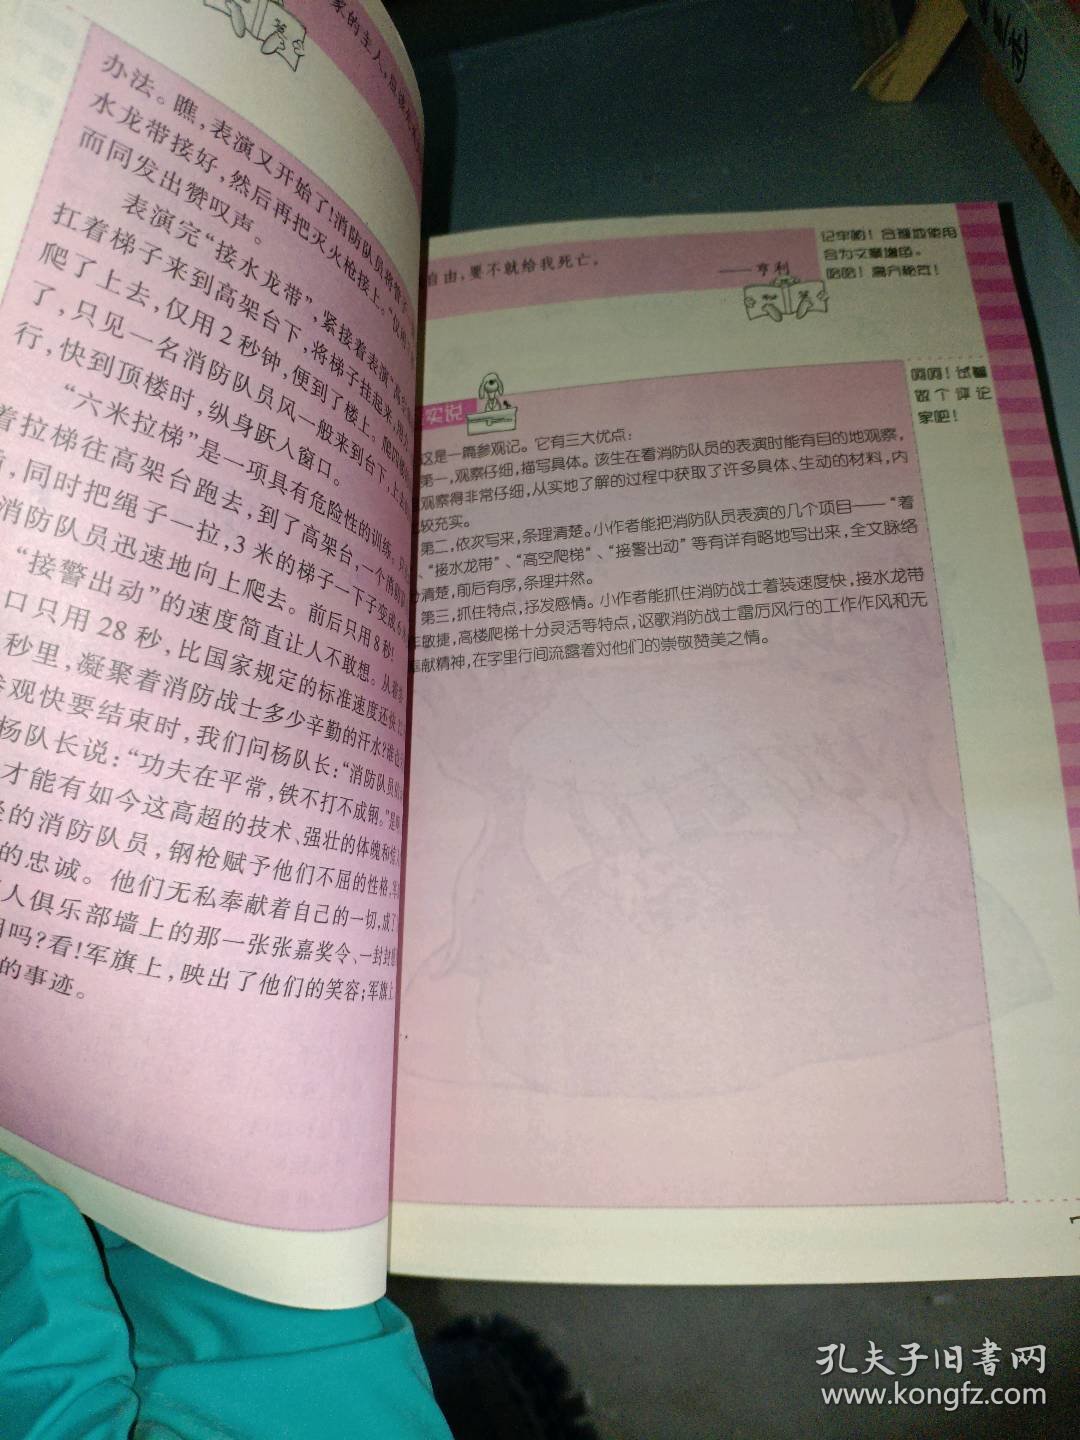 家的主人，应该
办法。瞧，表演又开始了！消防队员将
水龙带接好，然后再把灭火枪接上。“仅用
而同发出赞叹声。
表演完“接水龙带”，紧接着表演“高空
扛着梯子来到高架台下，将梯子挂起来，
爬了上去，仅用2秒钟，便到了楼上。
了，只见一名消防队员风一般来到台下，
行，快到顶楼时，纵身跃人窗口。
“六米拉梯”是一项具有危险性的训练，
着拉梯往高架台跑去，到了高架台，一个消防
，同时把绳子一拉，3米的梯子一下子变成6
消防队员迅速地向上爬去。前后只用8秒！
“接警出动”的速度简直让人不敢想。从
口只用28秒，比国家规定的标准速度还快
秒里，凝聚着消防战士多少辛勤的汗水？谁
参观快要结束时，我们问杨队长：“消防队员
杨队长说：“功夫在平常，铁不打不成钢。”是
才能有如今这高超的技术、强壮的体魄和
的消防队员，钢枪赋予他们不屈的性格，
的忠诚。他们无私奉献着自己的一切，成了
人俱乐部墙上的那一张张嘉奖令、一封封
吗？看！军旗上，映出了他们的笑容；军旗上
的事迹。
自由，要不就给我死亡。
——亨利
记牢哟！合理地使用
会为文章增色。
哈哈！高分秘笈！
实说
这是一篇参观记。它有三大优点：
第一，观察仔细，描写具体。该生在看消防队员的表演时能有目的地观察，
观察得非常仔细，从实地了解的过程中获取了许多具体、生动的材料，内
较充实。
第二，依次写来，条理清楚。小作者能把消防队员表演的几个项目——“着
、“接水龙带”、“高空爬梯”、“接警出动”等有详有略地写出来，全文脉络
清楚，前后有序，条理井然。
第三，抓住特点，抒发感情。小作者能抓住消防战士着装速度快，接水龙带
敏捷，高楼爬梯十分灵活等特点，讴歌消防战士雷厉风行的工作作风和无
奉献精神，在字里行间流露着对他们的崇敬赞美之情。
嗬嗬！试着
做个评论
家吧！
孔夫子旧书网
www.kongfz.com